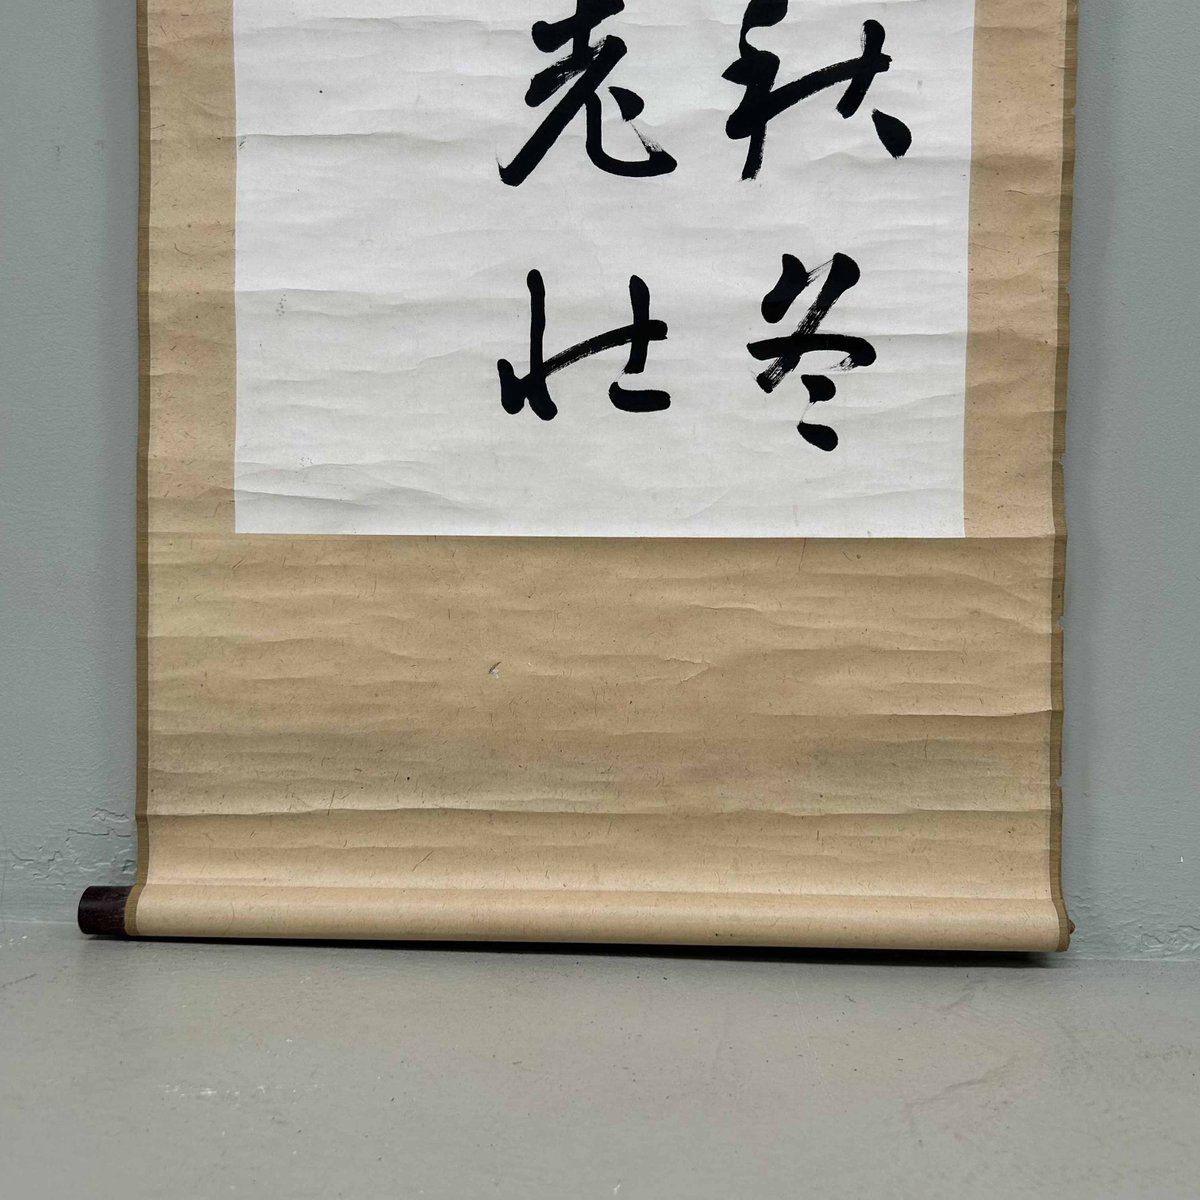 秋冬
老壮